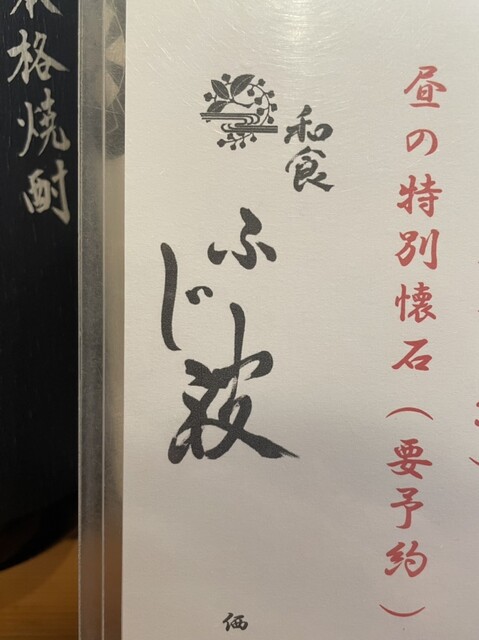 昼の特別懐石(要予約)
和食
ふじ波
価
本格焼酎